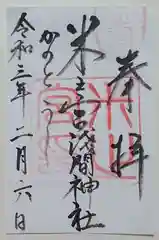 奉拝
米之宮浅間神社
かのとうし
令和三年二月六日